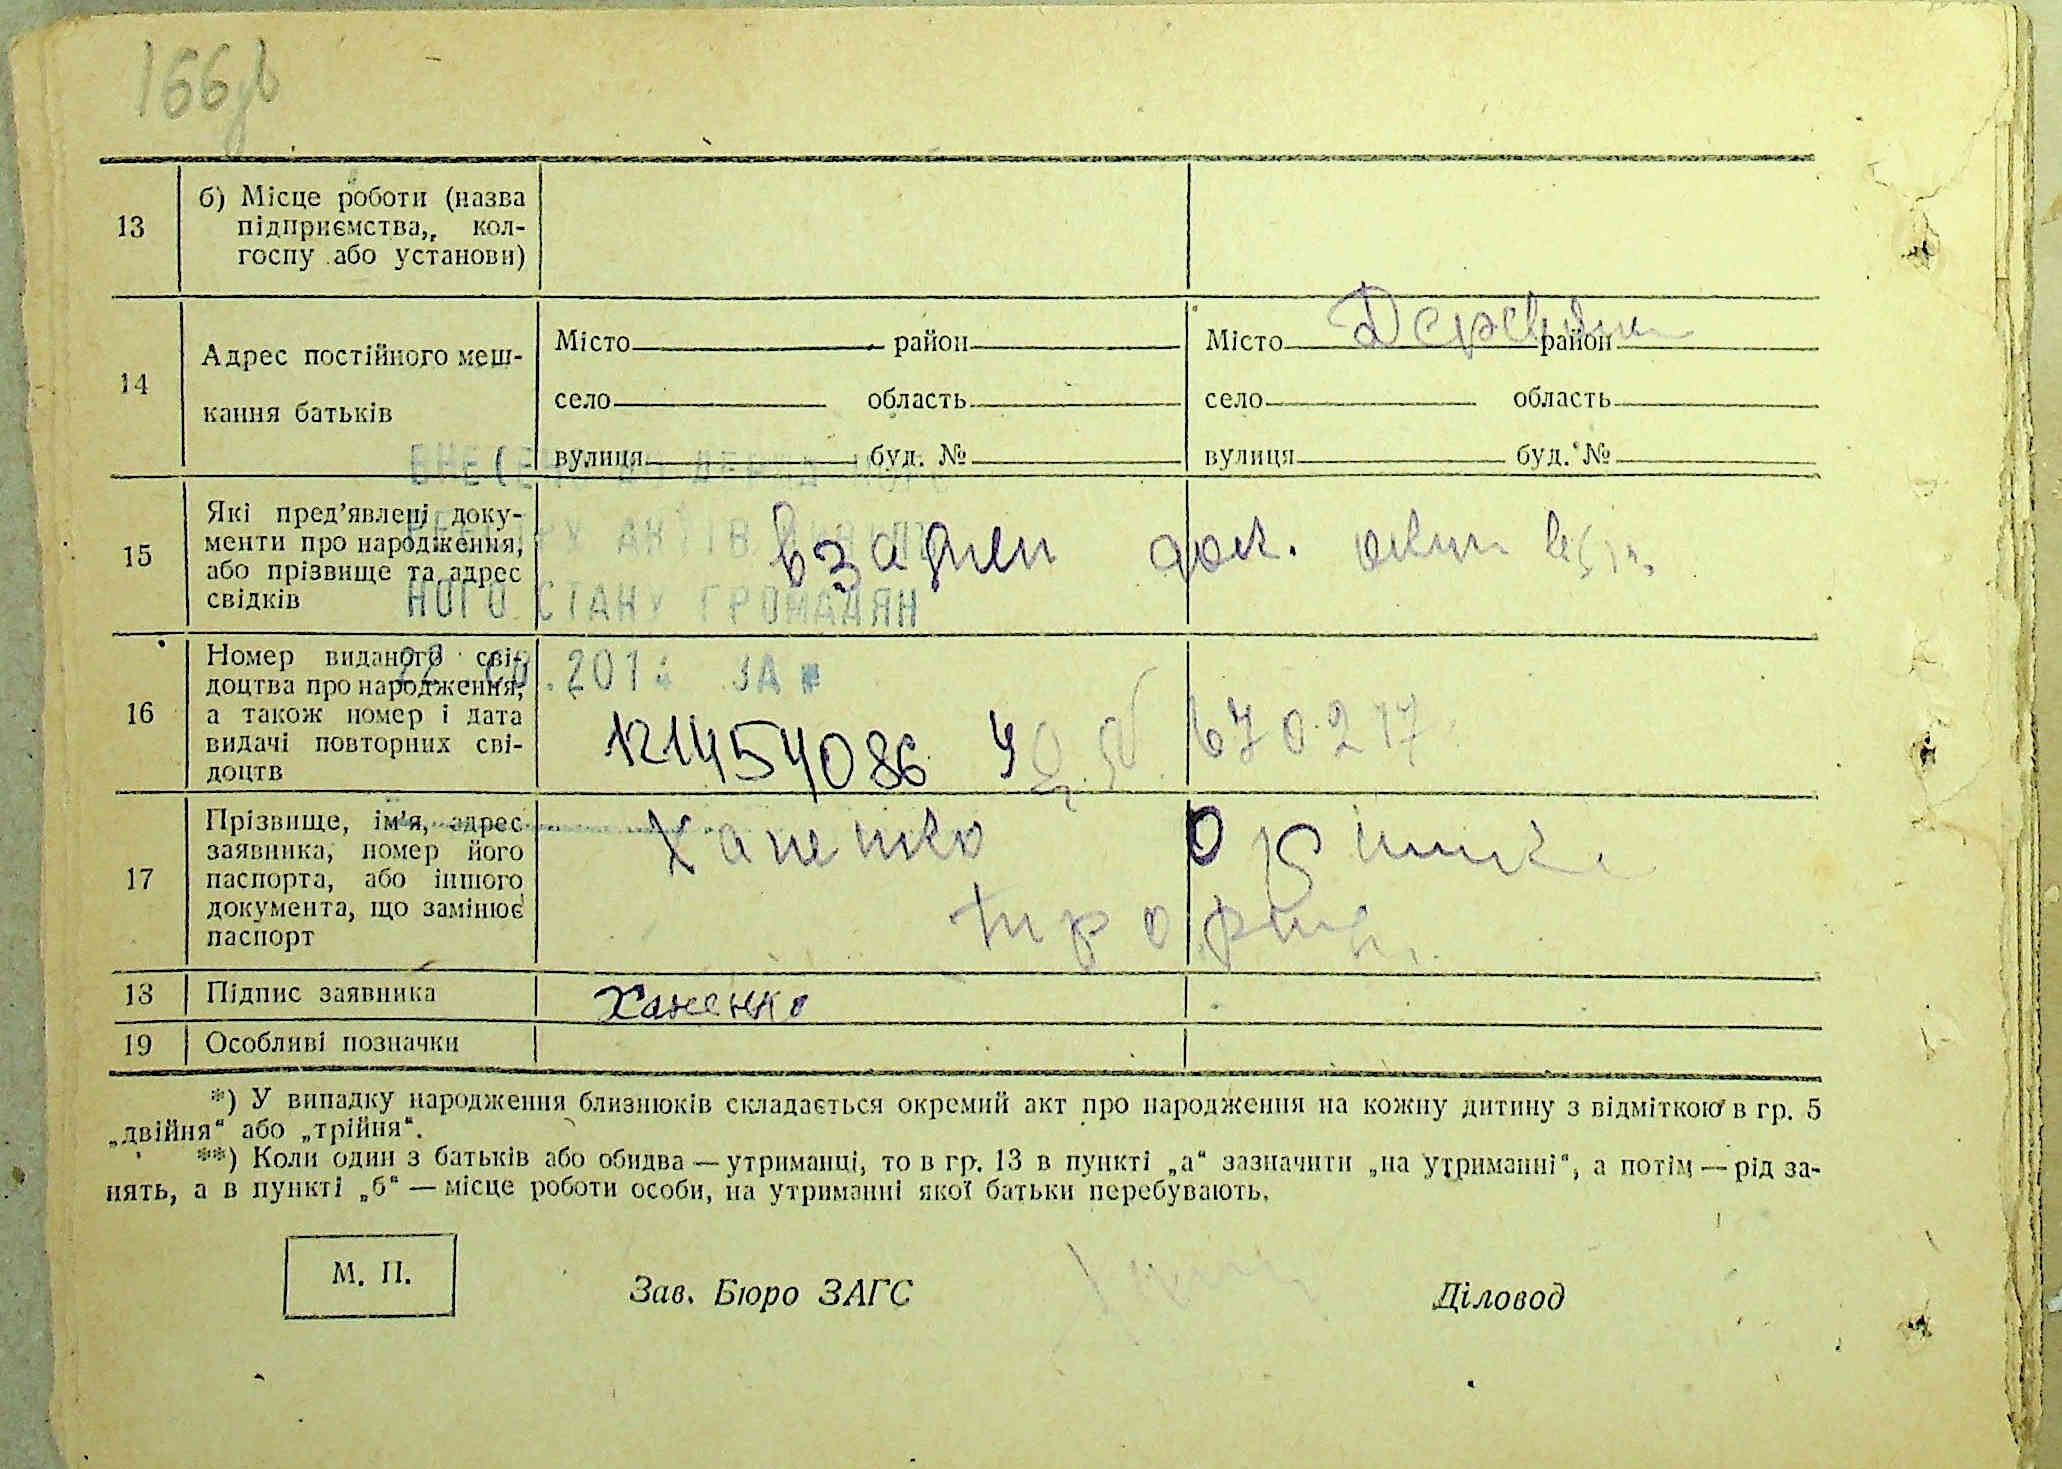 13
б) Місце роботи (назва
підприємства, кол-
госпу або установи)
14
Адрес постійного меш-
кання батьків
Місто район Місто район
село область село область
вулиця буд. № вулиця буд. №
15
Які пред'явлені доку-
менти про народження,
або прізвище та адрес
свідків
РЕЄСТРУ АКТІВ
НОГО СТАНУ ГРОМАДЯН
16
Номер виданого сві-
доцтва про народження,
а також номер і дата
видачі повторних сві-
доцтв
ЗА №
670217
17
Прізвище, ім'я, адрес
заявника, номер його
паспорта, або іншого
документа, що замінює
паспорт
Ханенко
18 Підпис заявника Ханенко
19 Особливі позначки
*) У випадку народження близнюків складається окремий акт про народження на кожну дитину з відміткою в гр. 5
„двійня“ або „трійня“.
**) Коли один з батьків або обидва — утриманці, то в гр. 13 в пункті „а“ зазначити „на утриманні“, а потім — рід за-
нять, а в пункті „б“ — місце роботи особи, на утриманні якої батьки перебувають.
М. П.
Зав. Бюро ЗАГС Діловод